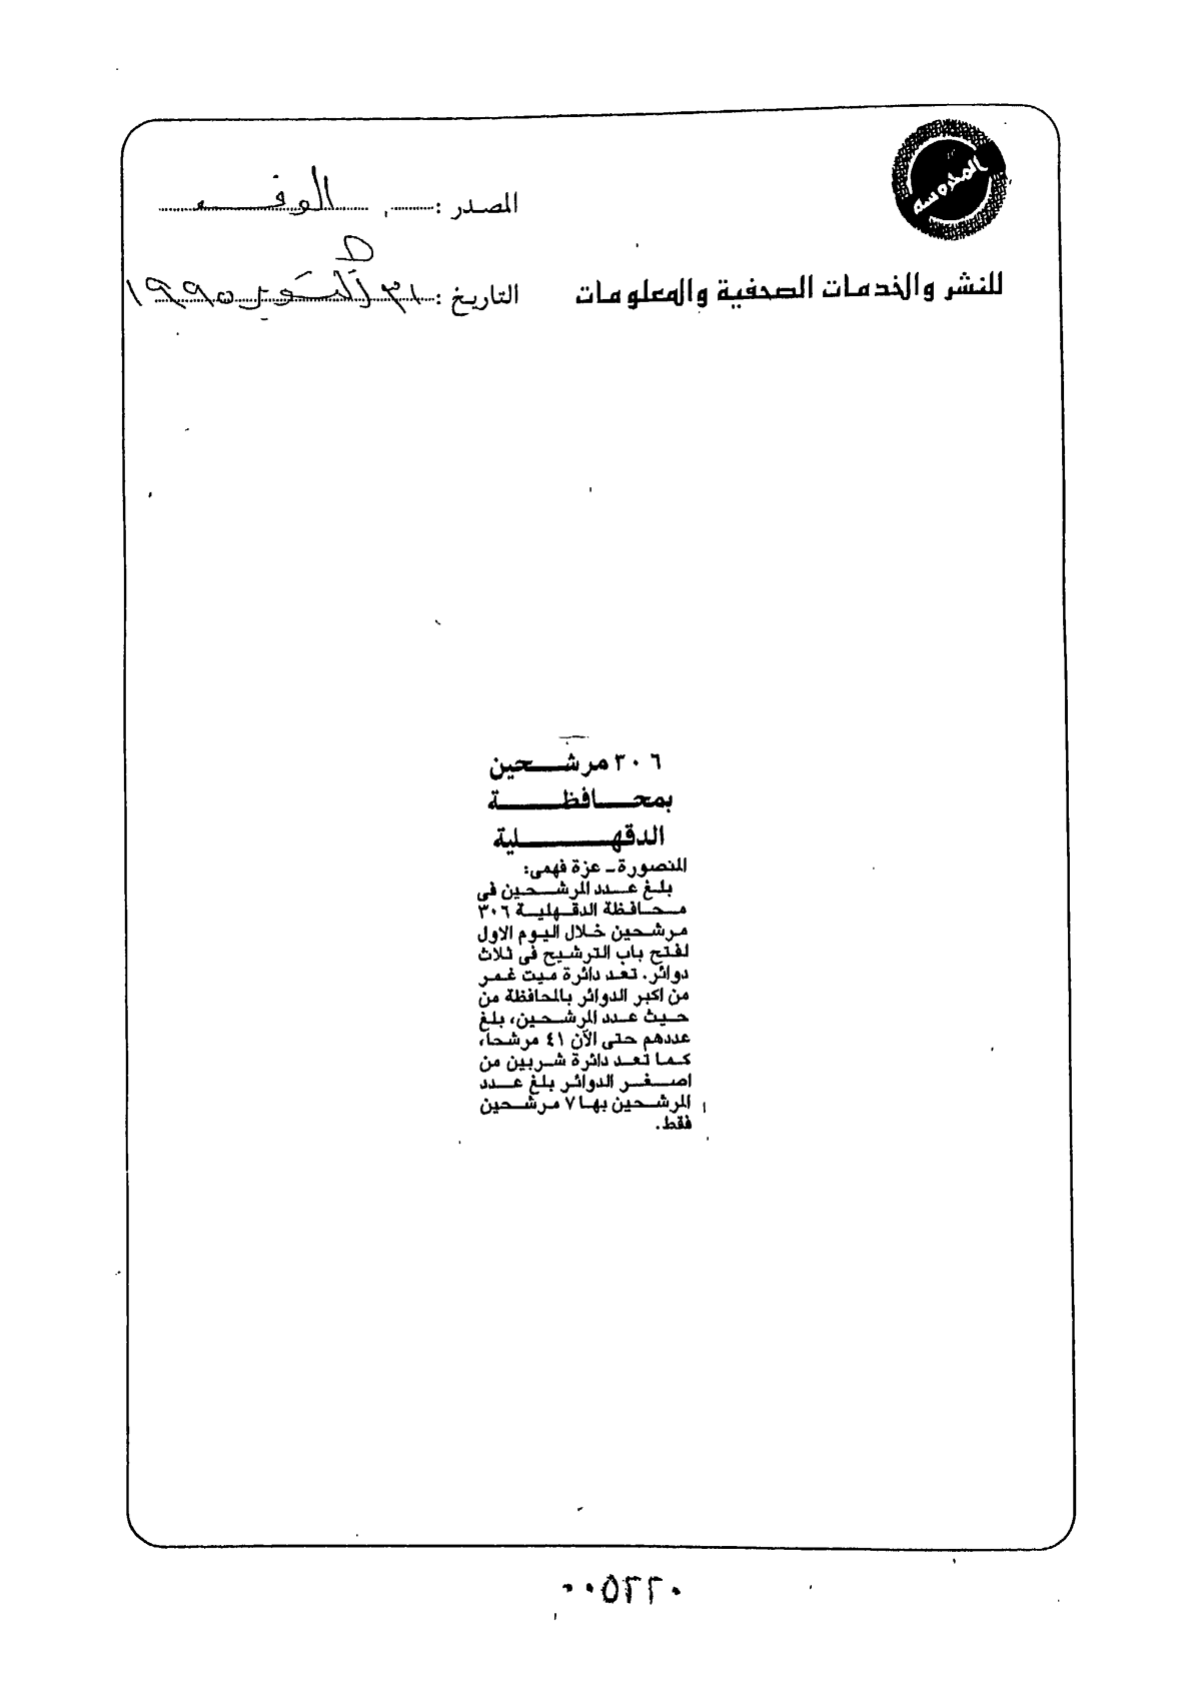 المحروسة
المصدر : الوفد
للنشر والخدمات الصحفية والمعلومات
التاريخ : ٣١ أكتوبر ١٩٩٥
٣٠٦ مرشحين
بمحافظة
الدقهلية
المنصورة - عزة فهمى:
بلغ عدد المرشحين فى
محافظة الدقهلية ٣٠٦
مرشحين خلال اليوم الاول
لفتح باب الترشيح فى ثلاث
دوائر. تعد دائرة ميت غمر
من اكبر الدوائر بالمحافظة من
حيث عدد المرشحين، بلغ
عددهم حتى الآن ٤١ مرشحا،
كما تعد دائرة شربين من
اصغر الدوائر بلغ عدد
المرشحين بها ٧ مرشحين
فقط.